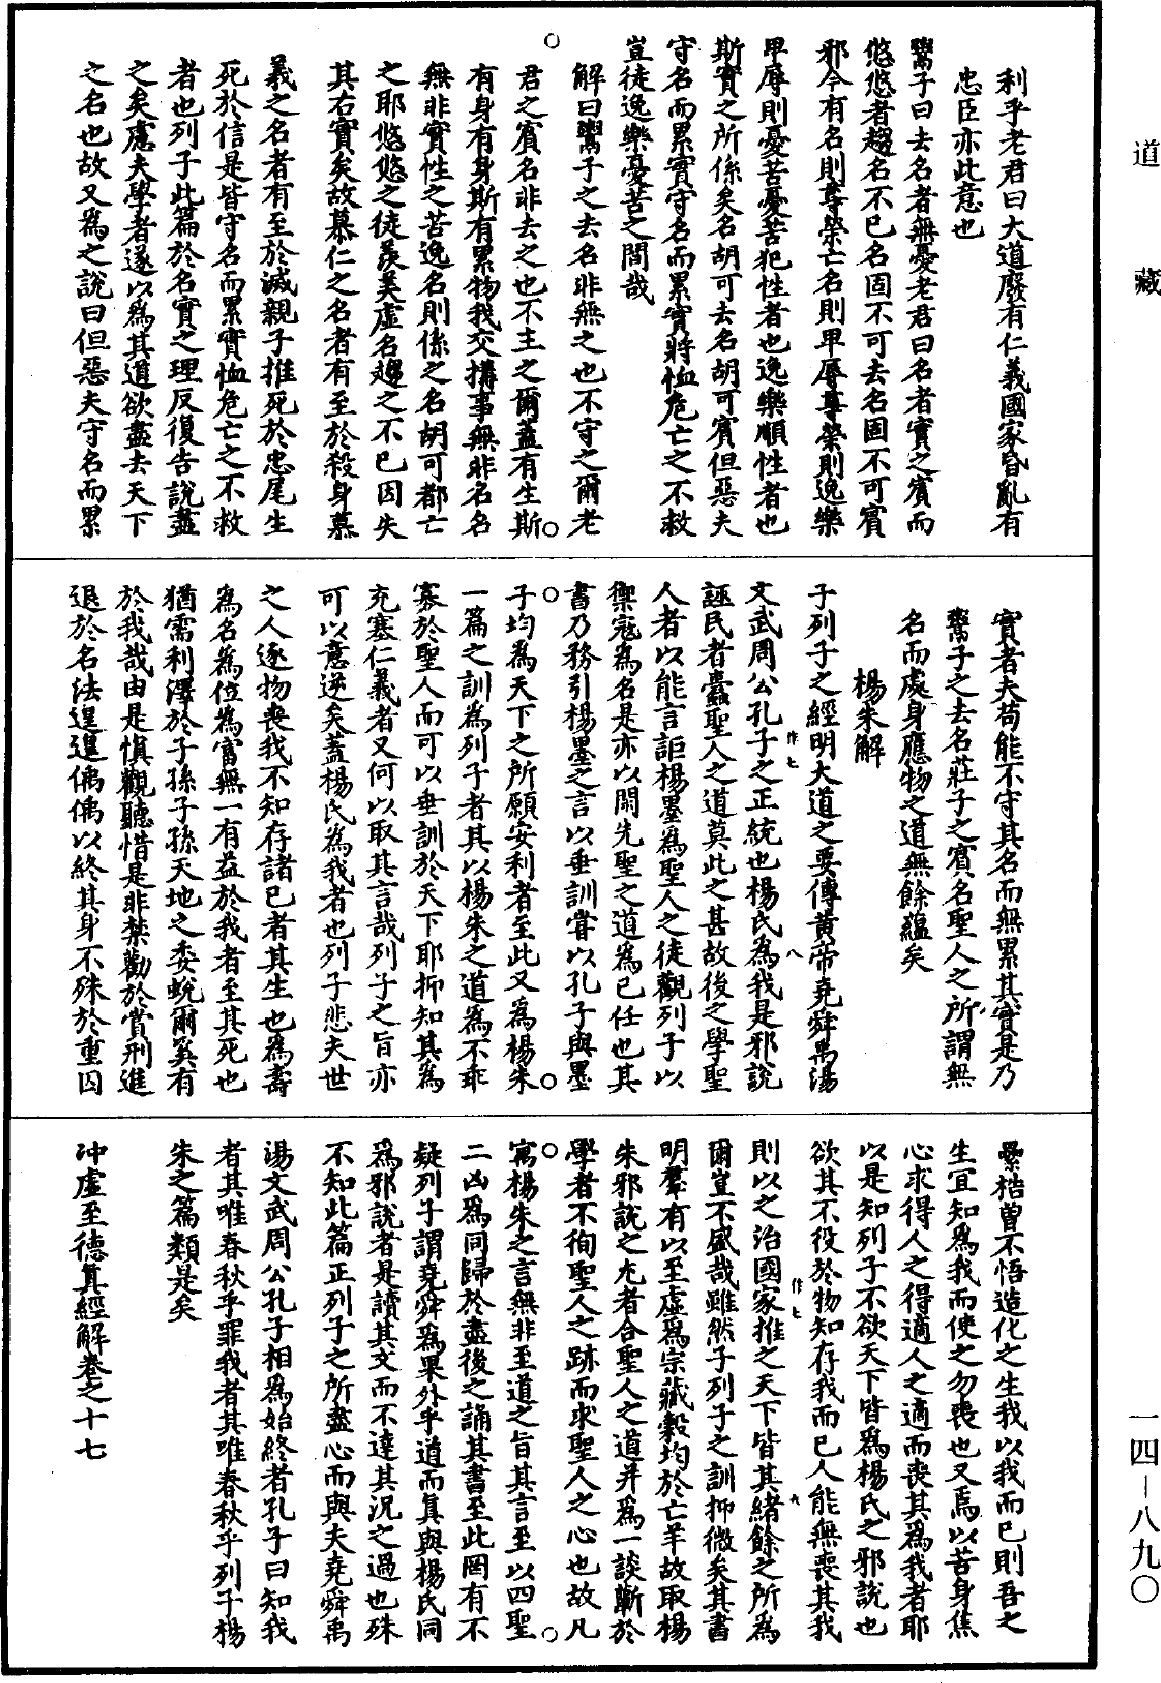 道藏
利乎老君曰大道廢有仁義國家昏亂有
忠臣亦此意也
鬻子曰去名者無憂老君曰名者實之賓而
悠悠者趨名不已名固不可去名固不可賓
邪今有名則尊榮亡名則卑辱尊榮則逸樂
卑辱則憂苦憂苦犯性者也逸樂順性者也
斯實之所係矣名胡可去名胡可賓但惡夫
守名而累實守名而累實將恤危亡之不救
豈徒逸樂憂苦之間哉
解曰鬻子之去名非無之也不守之爾老
君之賓名非去之也不主之爾蓋有生斯
有身有身斯有累物我交搆事無非名名
無非實性之苦逸名則係之名胡可都亡
之耶悠悠之徒羨美虛名趨之不已因失
其右實矣故慕仁之名者有至於殺身慕
義之名者有至於滅親子推死於忠尾生
死於信是皆守名而累實恤危亡之不救
者也列子此篇於名實之理反復告說盡
之矣慮夫學者遂以為其道欲盡去天下
之名也故又為之說曰但惡夫守名而累
實者夫苟能不守其名而無累其實是乃
鬻子之去名莊子之賓名聖人之所謂無
名而處身應物之道無餘蘊矣
楊朱解
子列子之經明大道之要傳黃帝堯舜禹湯
文武周公孔子之正統也楊氏為我是邪說
誣民者蠹聖人之道莫此之甚故後之學聖
人者以能言詎楊墨為聖人之徒觀列子以
禦寇為名是亦以閑先聖之道為已任也其
書乃務引楊墨之言以垂訓嘗以孔子與墨
子均為天下之所願安利者至此又為楊朱
一篇之訓為列子者其以楊朱之道為不乖
寡於聖人而可以垂訓於天下耶抑知其為
充塞仁義者又何以取其言哉列子之旨亦
可以意逆矣蓋楊氏為我者也列子悲夫世
之人逐物喪我不知存諸已者其生也為壽
為名為位為富無一有益於我者至其死也
猶需利澤於子孫子孫天地之委蛻爾奚有
於我哉由是慎觀聽惜是非禁勸於賞刑進
退於名法遑遑偊偊以終其身不殊於重囚
纍梏曾不悟造化之生我以我而已則吾之
生宜知為我而使之勿喪也又焉以苦身焦
心求得人之得適人之適而喪其為我者耶
以是知列子不欲天下皆為楊氏之邪說也
欲其不役於物知存我而已人能無喪其我
則以之治國家推之天下皆其緒餘之所為
爾豈不盛哉雖然子列子之訓抑微矣其書
明羣有以至虛為宗藏穀均於亡羊故取楊
朱邪說之尤者合聖人之道并為一談斷於
學者不徇聖人之跡而求聖人之心也故凡
寓楊朱之言無非至道之旨其言至以四聖
二凶為同歸於盡後之誦其書至此罔有不
疑列子謂堯舜為果外乎道而真與楊氏同
為邪說者是讀其文而不達其況之過也殊
不知此篇正列子之所盡心而與夫堯舜禹
湯文武周公孔子相為始終者孔子曰知我
者其唯春秋乎罪我者其唯春秋乎列子楊
朱之篇類是矣
冲虛至德真經解卷之十七
作七 八
作七 九
一四—八九〇